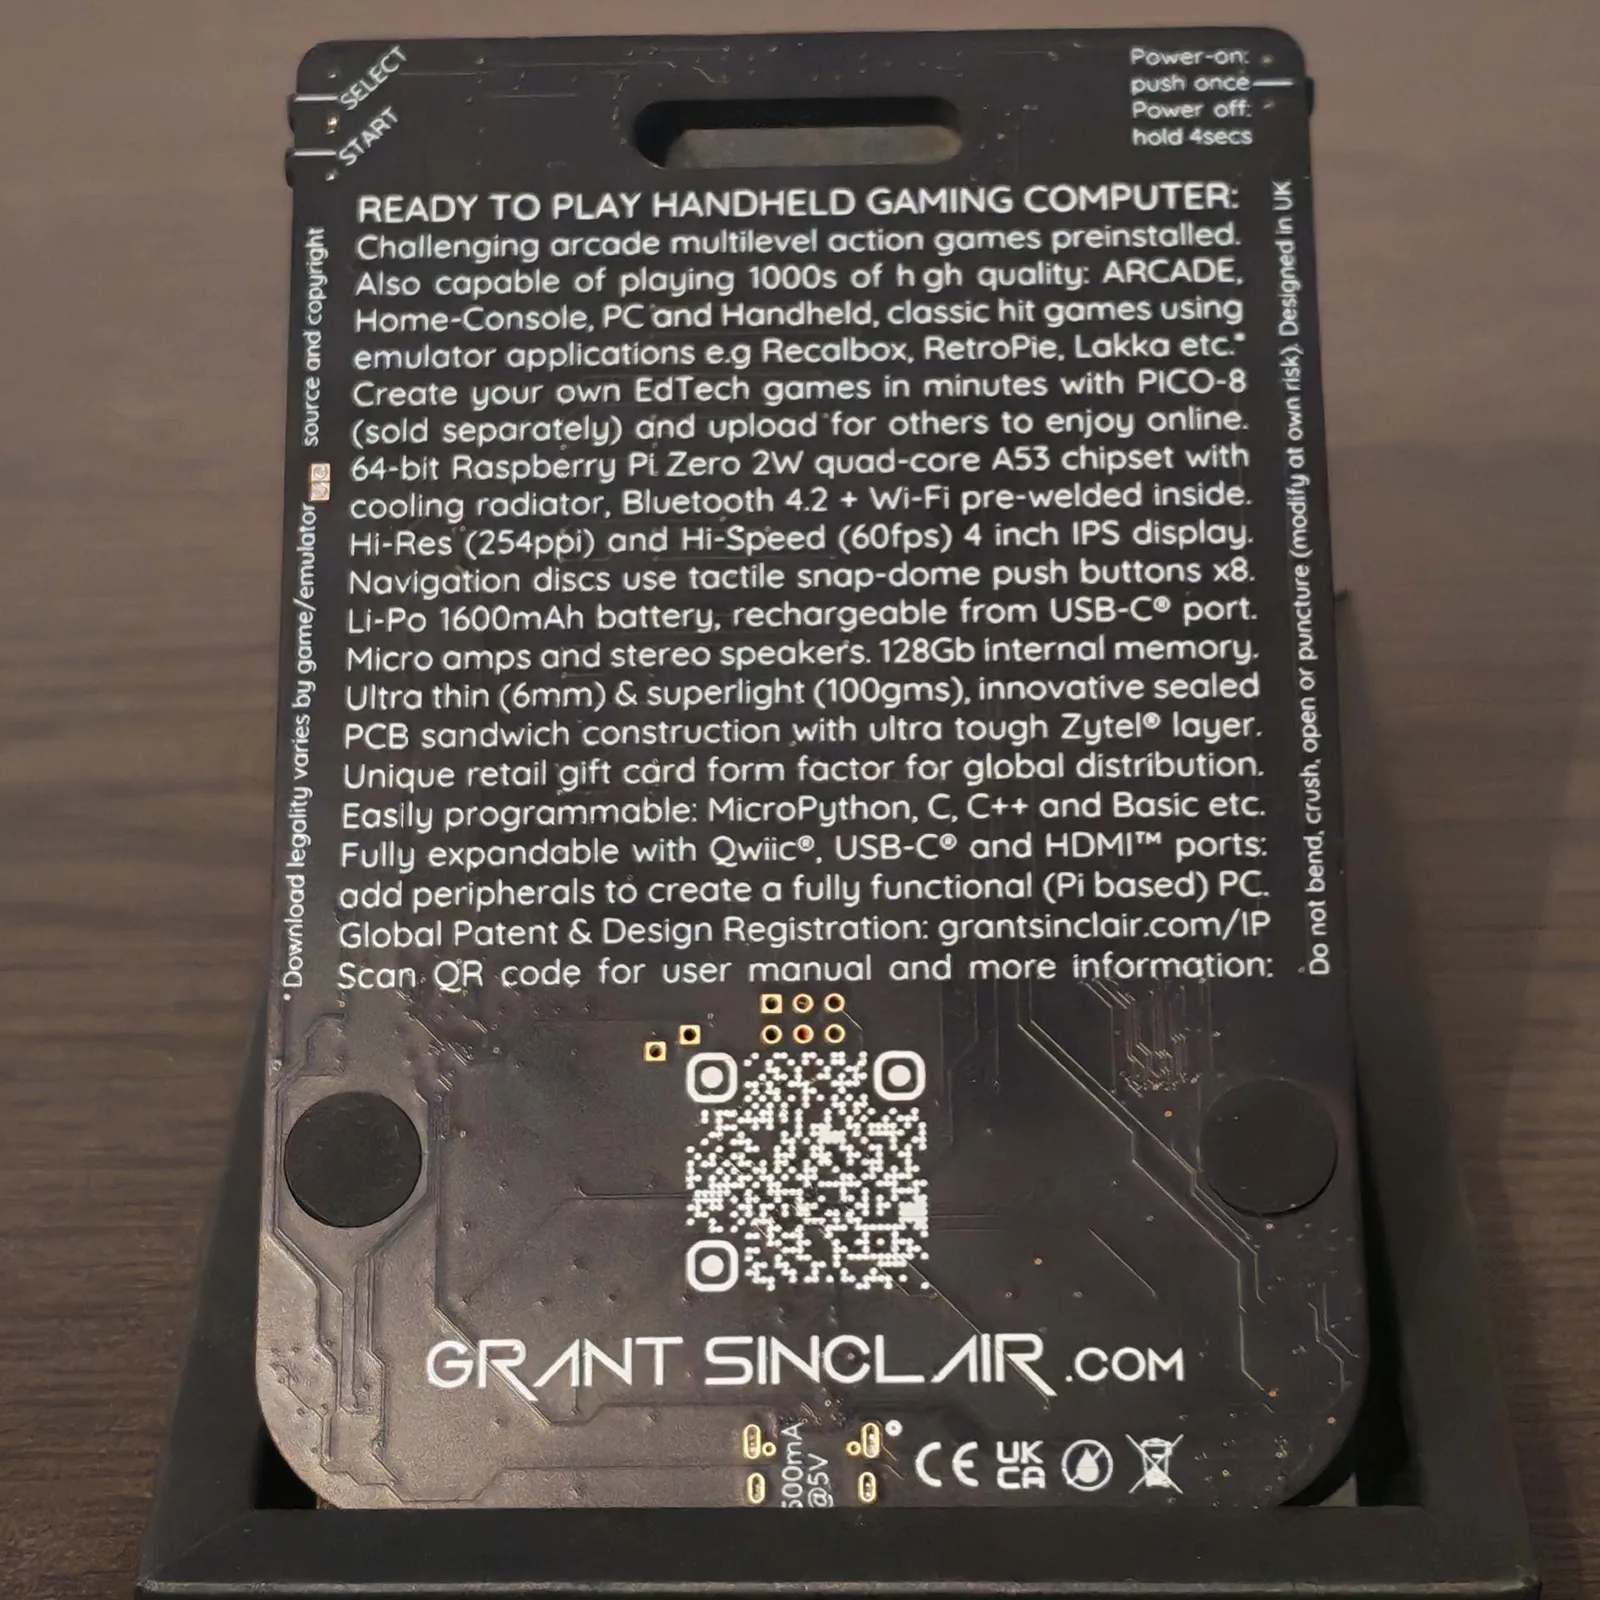 SELECT
START
Power-on:
push once
Power off:
hold 4secs
READY TO PLAY HANDHELD GAMING COMPUTER:
Challenging arcade multilevel action games preinstalled.
Also capable of playing 1000s of h gh quality: ARCADE,
Home-Console, PC and Handheld, classic hit games using
emulator applications e.g Recalbox, RetroPie, Lakka etc.*
Create your own EdTech games in minutes with PICO-8
(sold separately) and upload for others to enjoy online.
64-bit Raspberry Pi Zero 2W quad-core A53 chipset with
cooling radiator, Bluetooth 4.2 + Wi-Fi pre-welded inside.
Hi-Res (254ppi) and Hi-Speed (60fps) 4 inch IPS display.
Navigation discs use tactile snap-dome push buttons x8.
Li-Po 1600mAh battery, rechargeable from USB-C® port.
Micro amps and stereo speakers. 128Gb internal memory.
Ultra thin (6mm) & superlight (100gms), innovative sealed
PCB sandwich construction with ultra tough Zytel® layer.
Unique retail gift card form factor for global distribution.
Easily programmable: MicroPython, C, C++ and Basic etc.
Fully expandable with Qwiic®, USB-C® and HDMI™ ports:
add peripherals to create a fully functional (Pi based) PC.
Global Patent & Design Registration: grantsinclair.com/IP
Scan QR code for user manual and more information:
*Download legality varies by game/emulator source and copyright
Do not bend, crush, open or puncture (modify at own risk). Designed in UK
GRANT SINCLAIR.COM
@5V
CE UK
CA